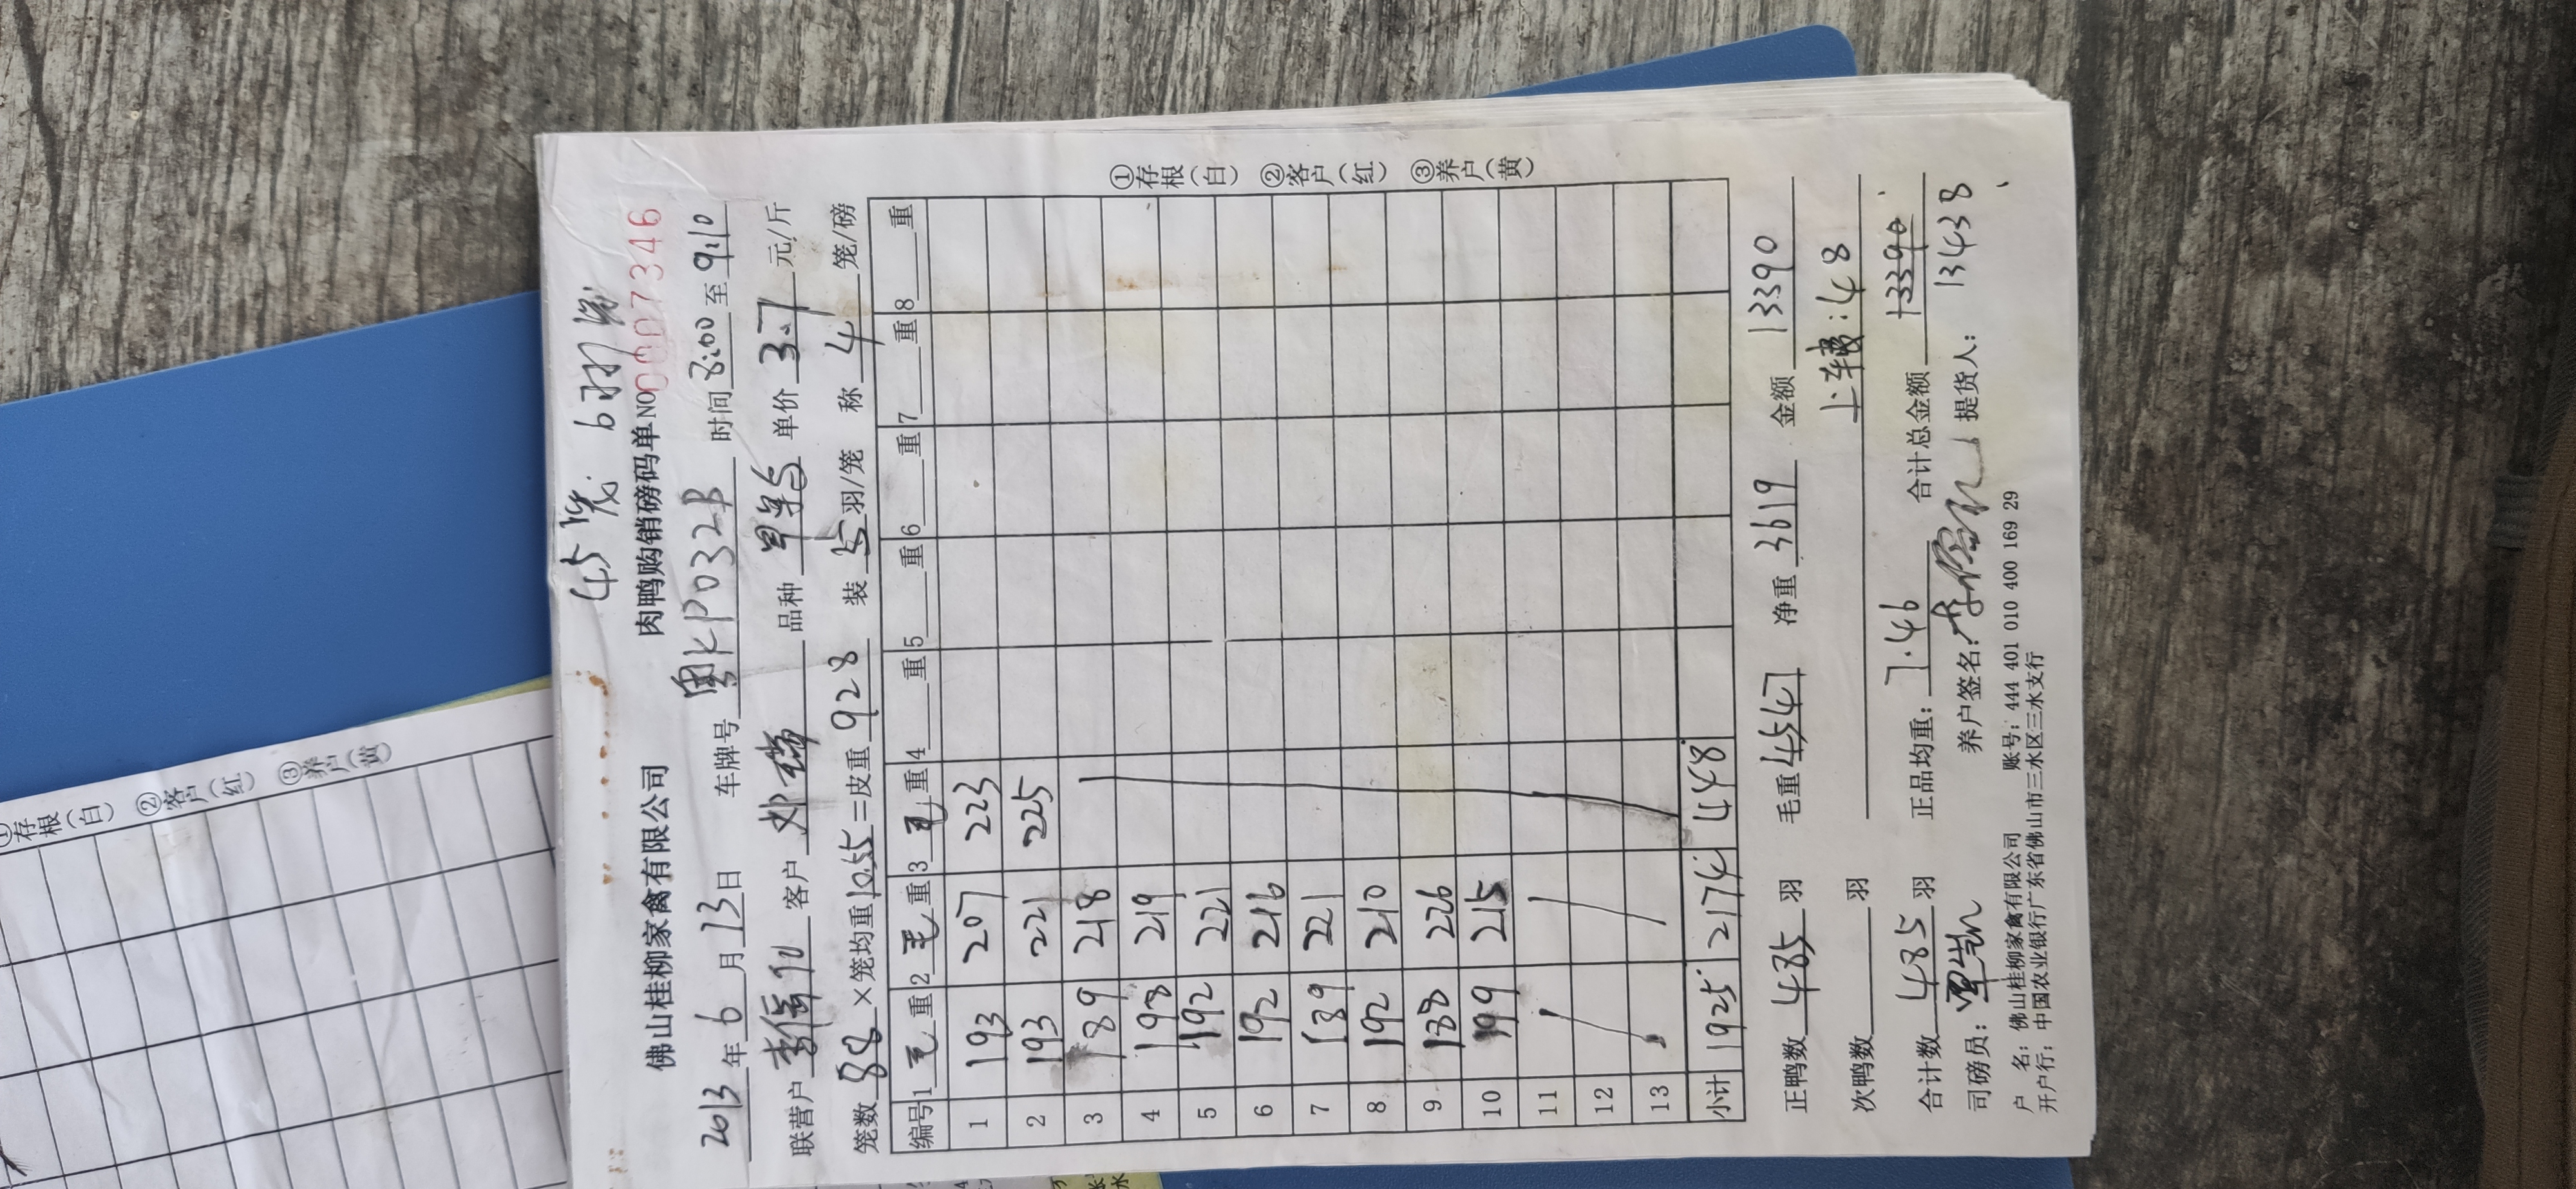 45笼：6羽/笼
佛山桂柳家禽有限公司 肉鸭购销磅码单 NO 0007346
2013年6月13日 车牌号 粤KP032B 时间 8:00 至 9:10
联营户 客户 邓 品种 单价 3.7 元/斤
笼数 88 ×笼均重 10.55 =皮重 928 装 5 羽/笼 称 4 笼/磅
编号 1 毛重 2 毛重 3 毛重 4 重 5 重 6 重 7 重 8 重
1 193 207 223
2 193 221 225
3 189 218
4 198 219
5 192 221
6 192 216
7 189 221
8 192 210
9 188 226
10 199 215
11
12
13
小计 1925 2174 448
①存根(白) ②客户(红) ③养户(黄)
正鸭数 485 羽 毛重 4547 净重 3619 金额 13390
次鸭数 羽 上车费:48
合计数 485 羽 正品均重: 7.46 合计总金额 13390
13438
司磅员: 养户签名: 提货人:
户 名: 佛山桂柳家禽有限公司 账号: 444 401 010 400 169 29
开户行: 中国农业银行广东省佛山市三水区三水支行
①存根(白) ②客户(红) ③养户(黄)